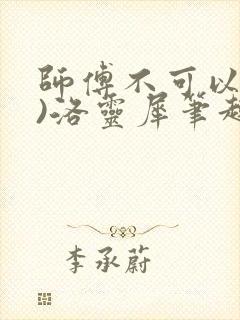 師傅不可以
)洛靈犀筆趣
李承蔚